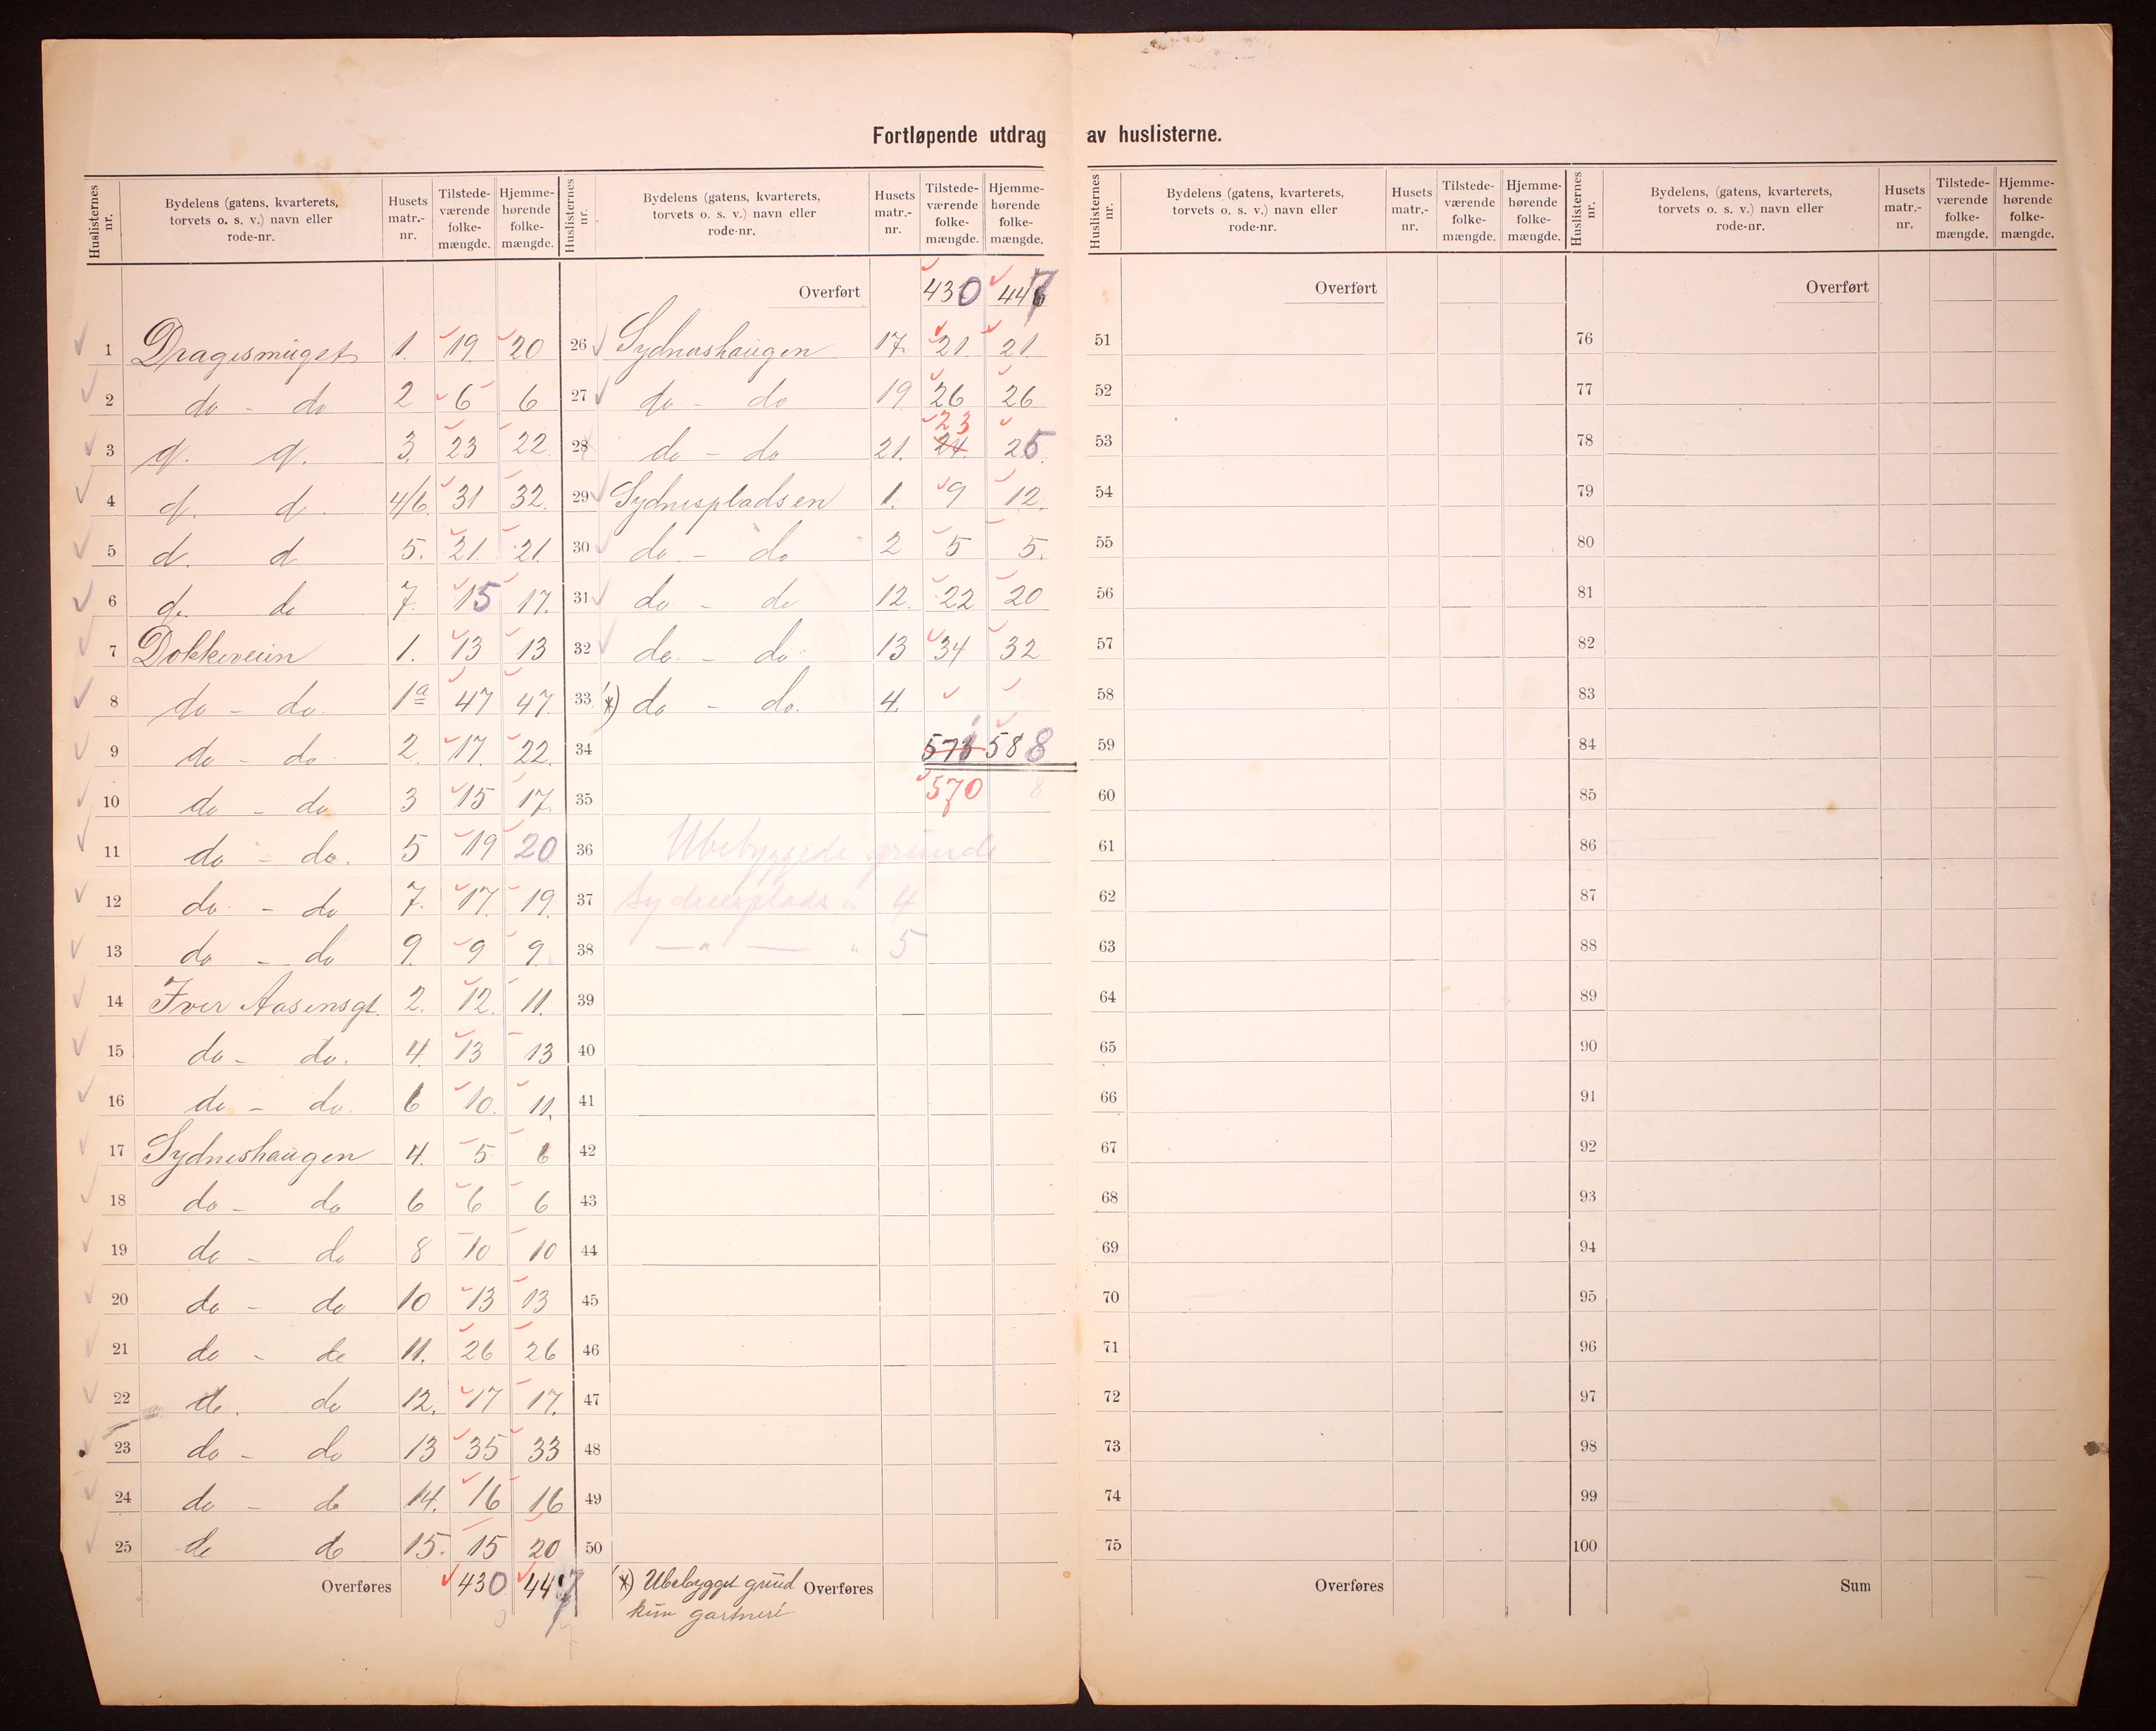 Fortløpende utdrag av huslisterne.
Huslisternes nr. | Bydelens (gatens, kvarterets, torvets o. s. v.) navn eller rode-nr. | Husets matr.-nr. | Tilstede-værende folke-mængde. | Hjemme-hørende folke-mængde.
1 Dragesmuget 1. 19 20
2 do - do 2 6 6
3 d. d. 3. 23 22.
4 d. d. 4/6. 31 32.
5 d. d 5. 21. 21.
6 d. do 7. 15 17.
7 Dokkeveien 1. 13 13
8 do - do. 1a 47 47.
9 do - do 2. 17. 22.
10 do - do 3 15 17.
11 do - do. 5 19 20
12 do. - do 7. 17. 19.
13 do - do 9. 9 9.
14 Iver Aasensgt. 2. 12. 11.
15 do - do. 4. 13 13
16 do - do. 6 10. 11.
17 Sydneshaugen 4. 5 6
18 do - do 6 6 6
19 do - do 8 10 10
20 do - do 10 13 13
21 do - do 11. 26 26
22 do. do 12. 17 17.
23 do - do 13 35 33
24 do - do 14. 16 16
25 do do 15. 15 20
Overføres 430 447
Huslisternes nr. | Bydelens (gatens, kvarterets, torvets o. s. v.) navn eller rode-nr. | Husets matr.-nr. | Tilstede-værende folke-mængde. | Hjemme-hørende folke-mængde.
Overført 430 447
26 Sydneshaugen 17. 21. 21.
27 do - do 19. 26 26
23
28 do - do 21. 24. 25.
29 Sydnespladsen 1. 9 12.
30 do - do 2 5 5.
31 do - do 12. 22 20
32 do. - do 13 34 32
33 *) do - do. 4.
34 571 588
35 570 8
36 Ubebyggede grunde
37 Sydnesplads " 4
38 — " — " 5
39
40
41
42
43
44
45
46
47
48
49
50
*) Ubebygget grund Overføres
kun gartneri
Huslisternes nr. | Bydelens (gatens, kvarterets, torvets o. s. v.) navn eller rode-nr. | Husets matr.-nr. | Tilstede-værende folke-mængde. | Hjemme-hørende folke-mængde.
Overført
51
52
53
54
55
56
57
58
59
60
61
62
63
64
65
66
67
68
69
70
71
72
73
74
75
Overføres
Huslisternes nr. | Bydelens, (gatens, kvarterets, torvets o. s. v.) navn eller rode-nr. | Husets matr.-nr. | Tilstede-værende folke-mængde. | Hjemme-hørende folke-mængde.
Overført
76
77
78
79
80
81
82
83
84
85
86
87
88
89
90
91
92
93
94
95
96
97
98
99
100
Sum